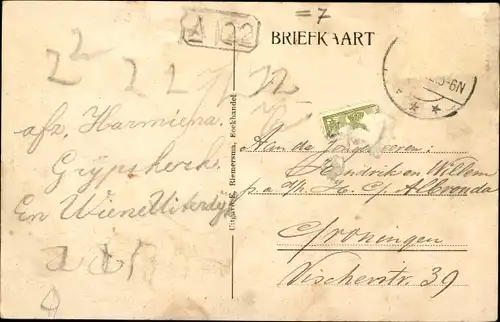 = 7
A 22
BRIEFKAART
5-6N
22
2 2 22
afz. Harmiena
Grijpskerk.
En Wiena Uiterdijk
Uitgave: J. Riemersma, Boekhandel
Aan de Jongeheeren:
Hendrik en Willem
p.a. d/h. H. C. Albronda
Groningen
Visscherstr. 39